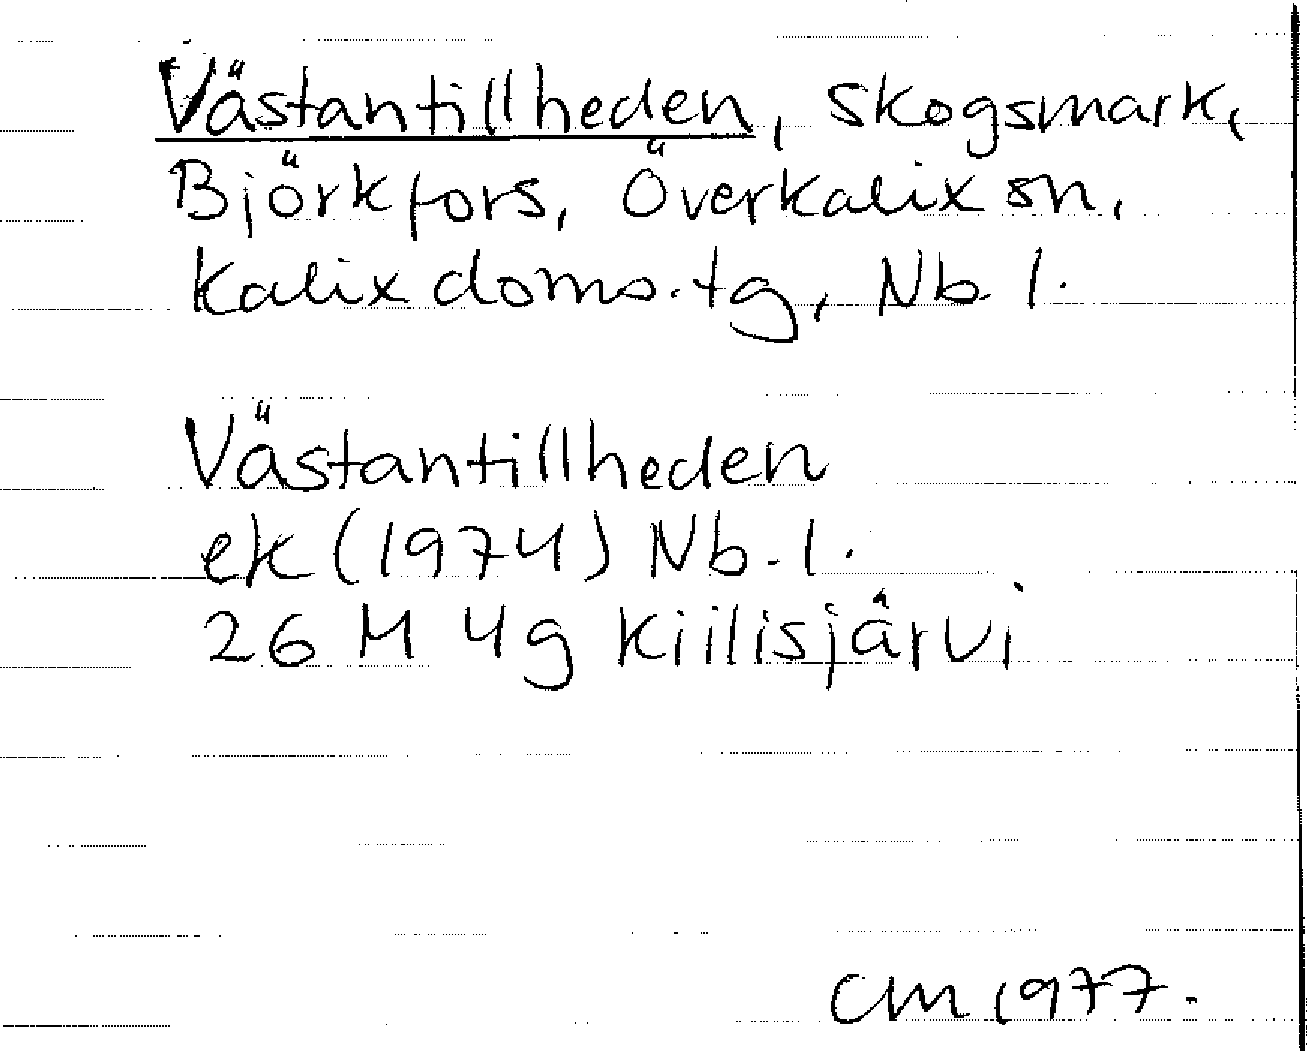 Västantillheden, skogsmark,
Björkfors, Överkalix sn,
Kalix doms.tg, Nb l.
Västantillheden
ek (1974) Nb. l.
26 M 4g Kiilisjärvi
CM 1977.